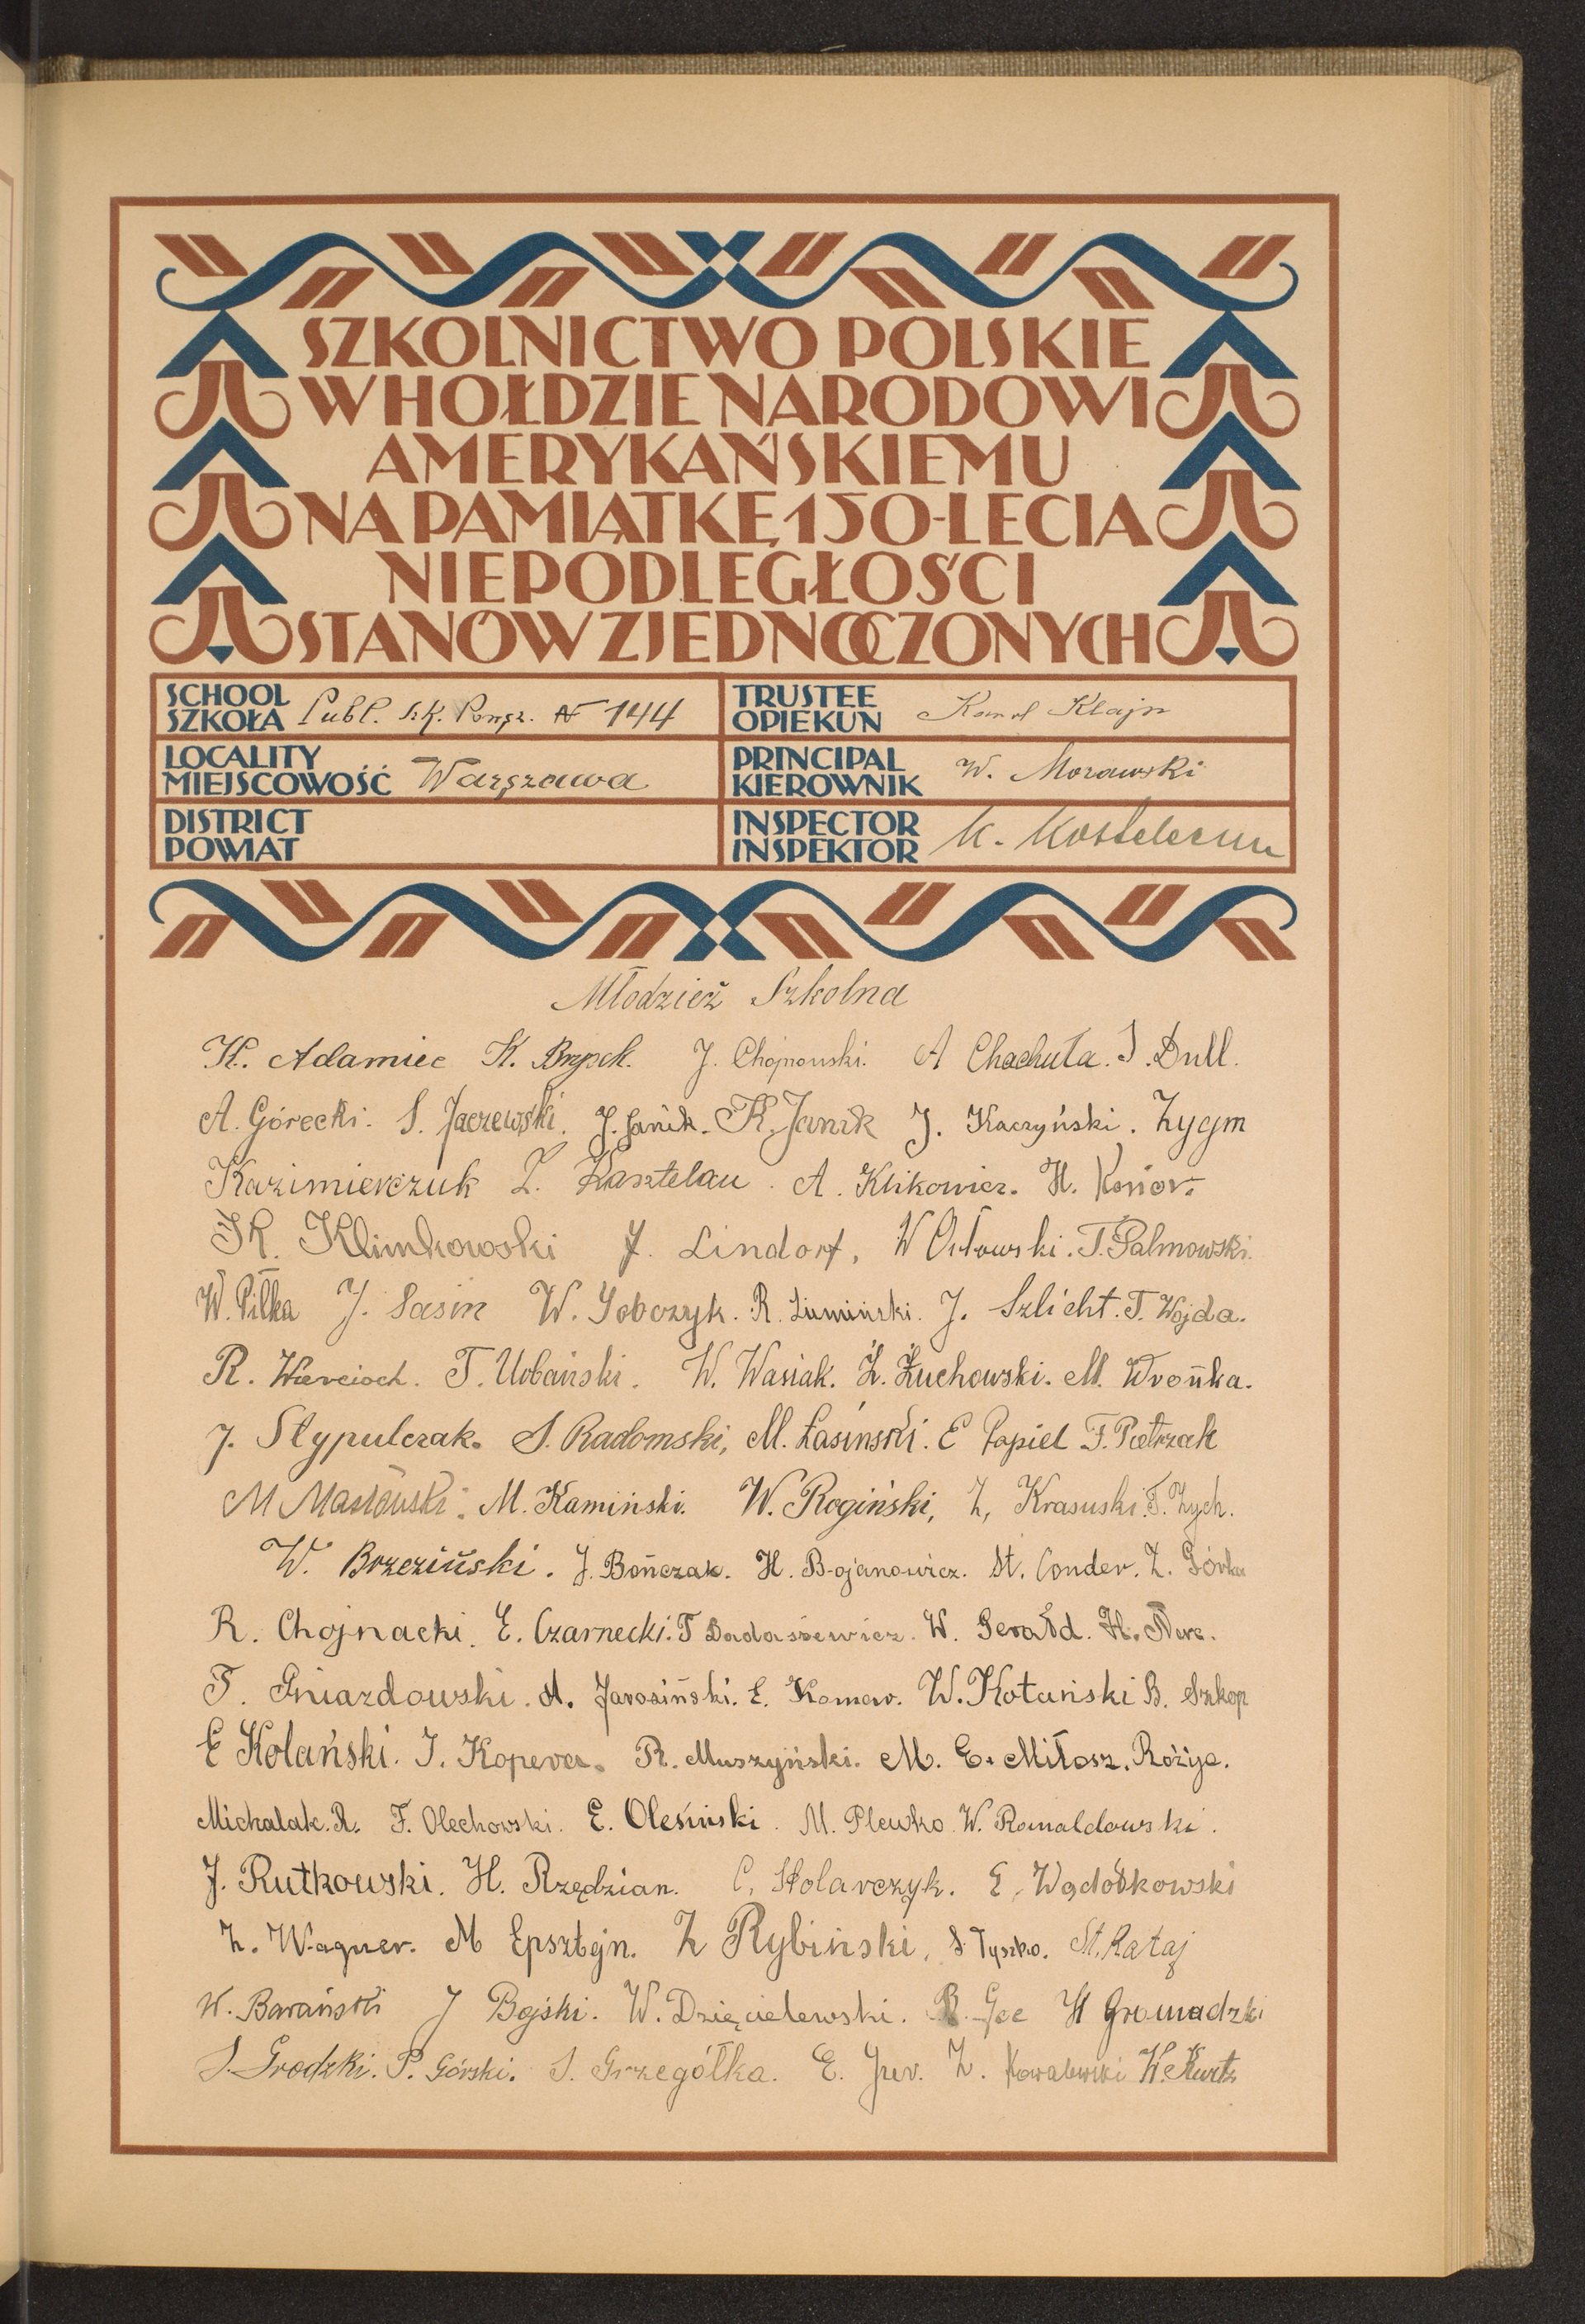 SZKOLNICTWO POLSKIE
W HOŁDZIE NARODOWI
AMERYKAŃSKIEMU
NA PAMIĄTKĘ 150-LECIA
NIEPODLEGŁOŚCI
STANÓW ZJEDNOCZONYCH
SCHOOL
SZKOŁA Publ. Szk. Powsz. № 144
TRUSTEE
OPIEKUN Karol Klajn
LOCALITY
MIEJSCOWOŚĆ Warszawa
PRINCIPAL
KIEROWNIK W. Morawski
DISTRICT
POWIAT
INSPECTOR
INSPEKTOR K.
Młodzież Szkolna
K. Adamiec K. J. Chojnowski. A Chachuła. J. Dull.
A. Górecki. S. Jaczewski. J. Janik. K. Janik J. Kaczyński. Zygm
Kazimierczuk Z. Kasztelan. A. Klikowicz. H.
K. Klimkowski J. Lindorf, W Orłowski. T. Palmowski.
W. Pilka J. Sasin W. Sobczyk. R. Sumiński. J. Szlicht. T. Wojda.
R. Wiercioch. T. Urbański. W. Wasiak. Z. Żuchowski. M. Wrońka.
J. Stypulczak. S. Radomski, M. Łasiński. E Papiel F. Pietrzak
M Masłowski. M. Kamiński. W. Rogiński, Z, Krasuski. T. Zych.
W. Brzeziński. J. Bończak. H. Bojanowicz. St. Conder. Z. Górka
R. Chojnacki. E. Czarnecki. T Dadasiewicz. W. Gerałd. H.
T. Gniazdowski. A. Jarosiński. E. Komar. W. Kotuński B. Szkop
E Kolański. J. Kopera. R. Muszyński. M. E. Miłosz. Różyc.
Michalak. R. F. Olechowski. E. Olesiński. M. Plewko. W. Romaldowski.
J. Rutkowski. H. Rzędzian. C. Stolarczyk. E. Wądołkowski
Z. Wagner. M Epsztejn. Z Rybiński, S Tyszko. St. Rataj
W. Barański J Bojski. W. Dzięcielewski. R. Goc H Gromadzki
S. Grodzki. P. Górski. S. Grzegółka. E. Jrer. Z. Kowalewski W. Kurtz